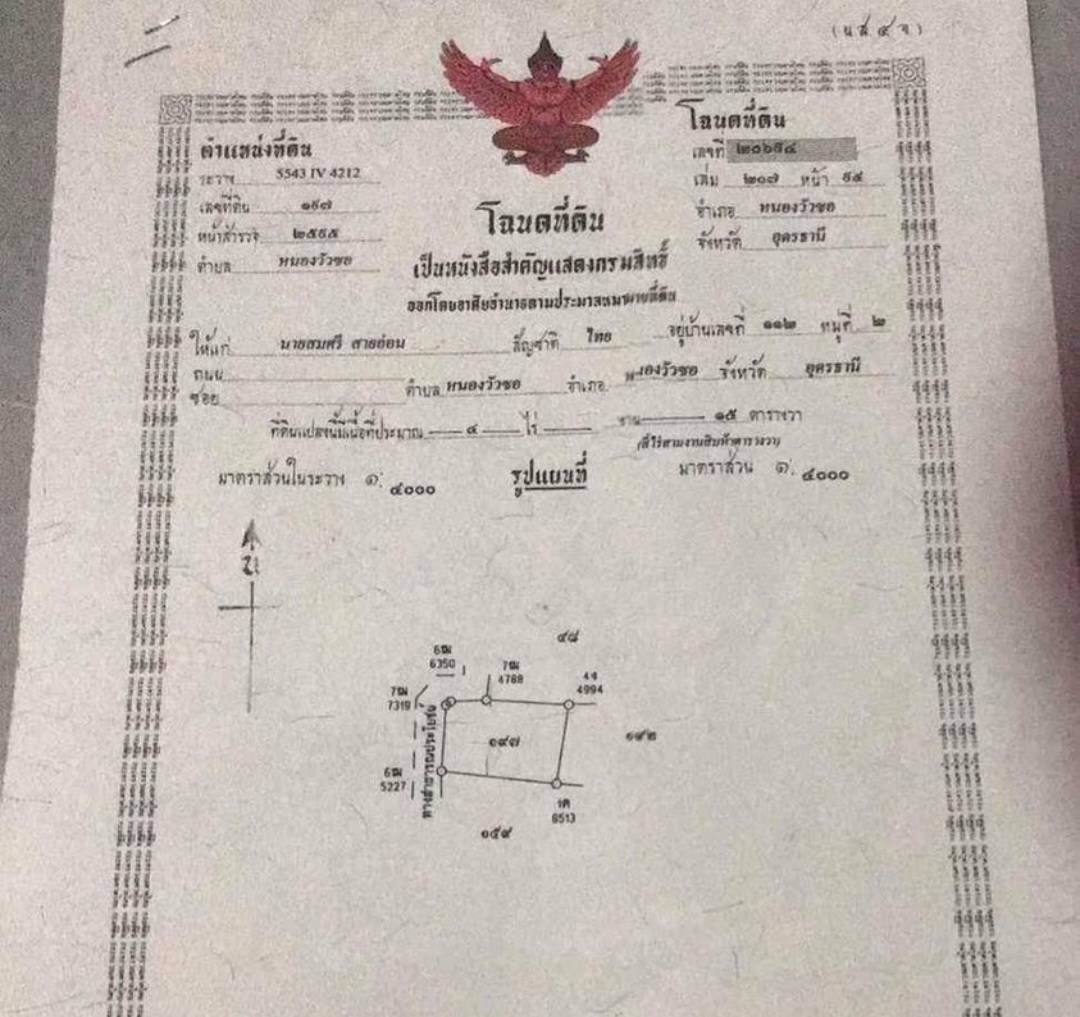 (น.ส.๔ จ)
ตำแหน่งที่ดิน
ระวาง 5543 IV 4212
เลขที่ดิน ๑๙๗
หน้าสำรวจ
ตำบล หนองวัวซอ
โฉนดที่ดิน
เลขที่
เล่ม ๒๐๗ หน้า
อำเภอ หนองวัวซอ
จังหวัด อุดรธานี
โฉนดที่ดิน
เป็นหนังสือสำคัญแสดงกรรมสิทธิ์
ออกโดยอาศัยอำนาจตามประมวลกฎหมายที่ดิน
ให้แก่ นายสมศรี สายอ่อน สัญชาติ ไทย อยู่บ้านเลขที่ ๑๑๒ หมู่ที่ ๒
ถนน
ซอย ตำบล หนองวัวซอ อำเภอ หนองวัวซอ จังหวัด อุดรธานี
ที่ดินแปลงนี้มีเนื้อที่ประมาณ ๔ ไร่ งาน ๑๕ ตารางวา
มาตราส่วนในระวาง ๑: ๔๐๐๐ รูปแผนที่ มาตราส่วน ๑: ๔๐๐๐
น
๔๘
6ฒ
6350
7ฒ
4788
4จ
4994
7ฒ
7319
ทางสาธารณประโยชน์
๑๙๗
๑๙๒
6ฒ
5227
6513
๑๕๙